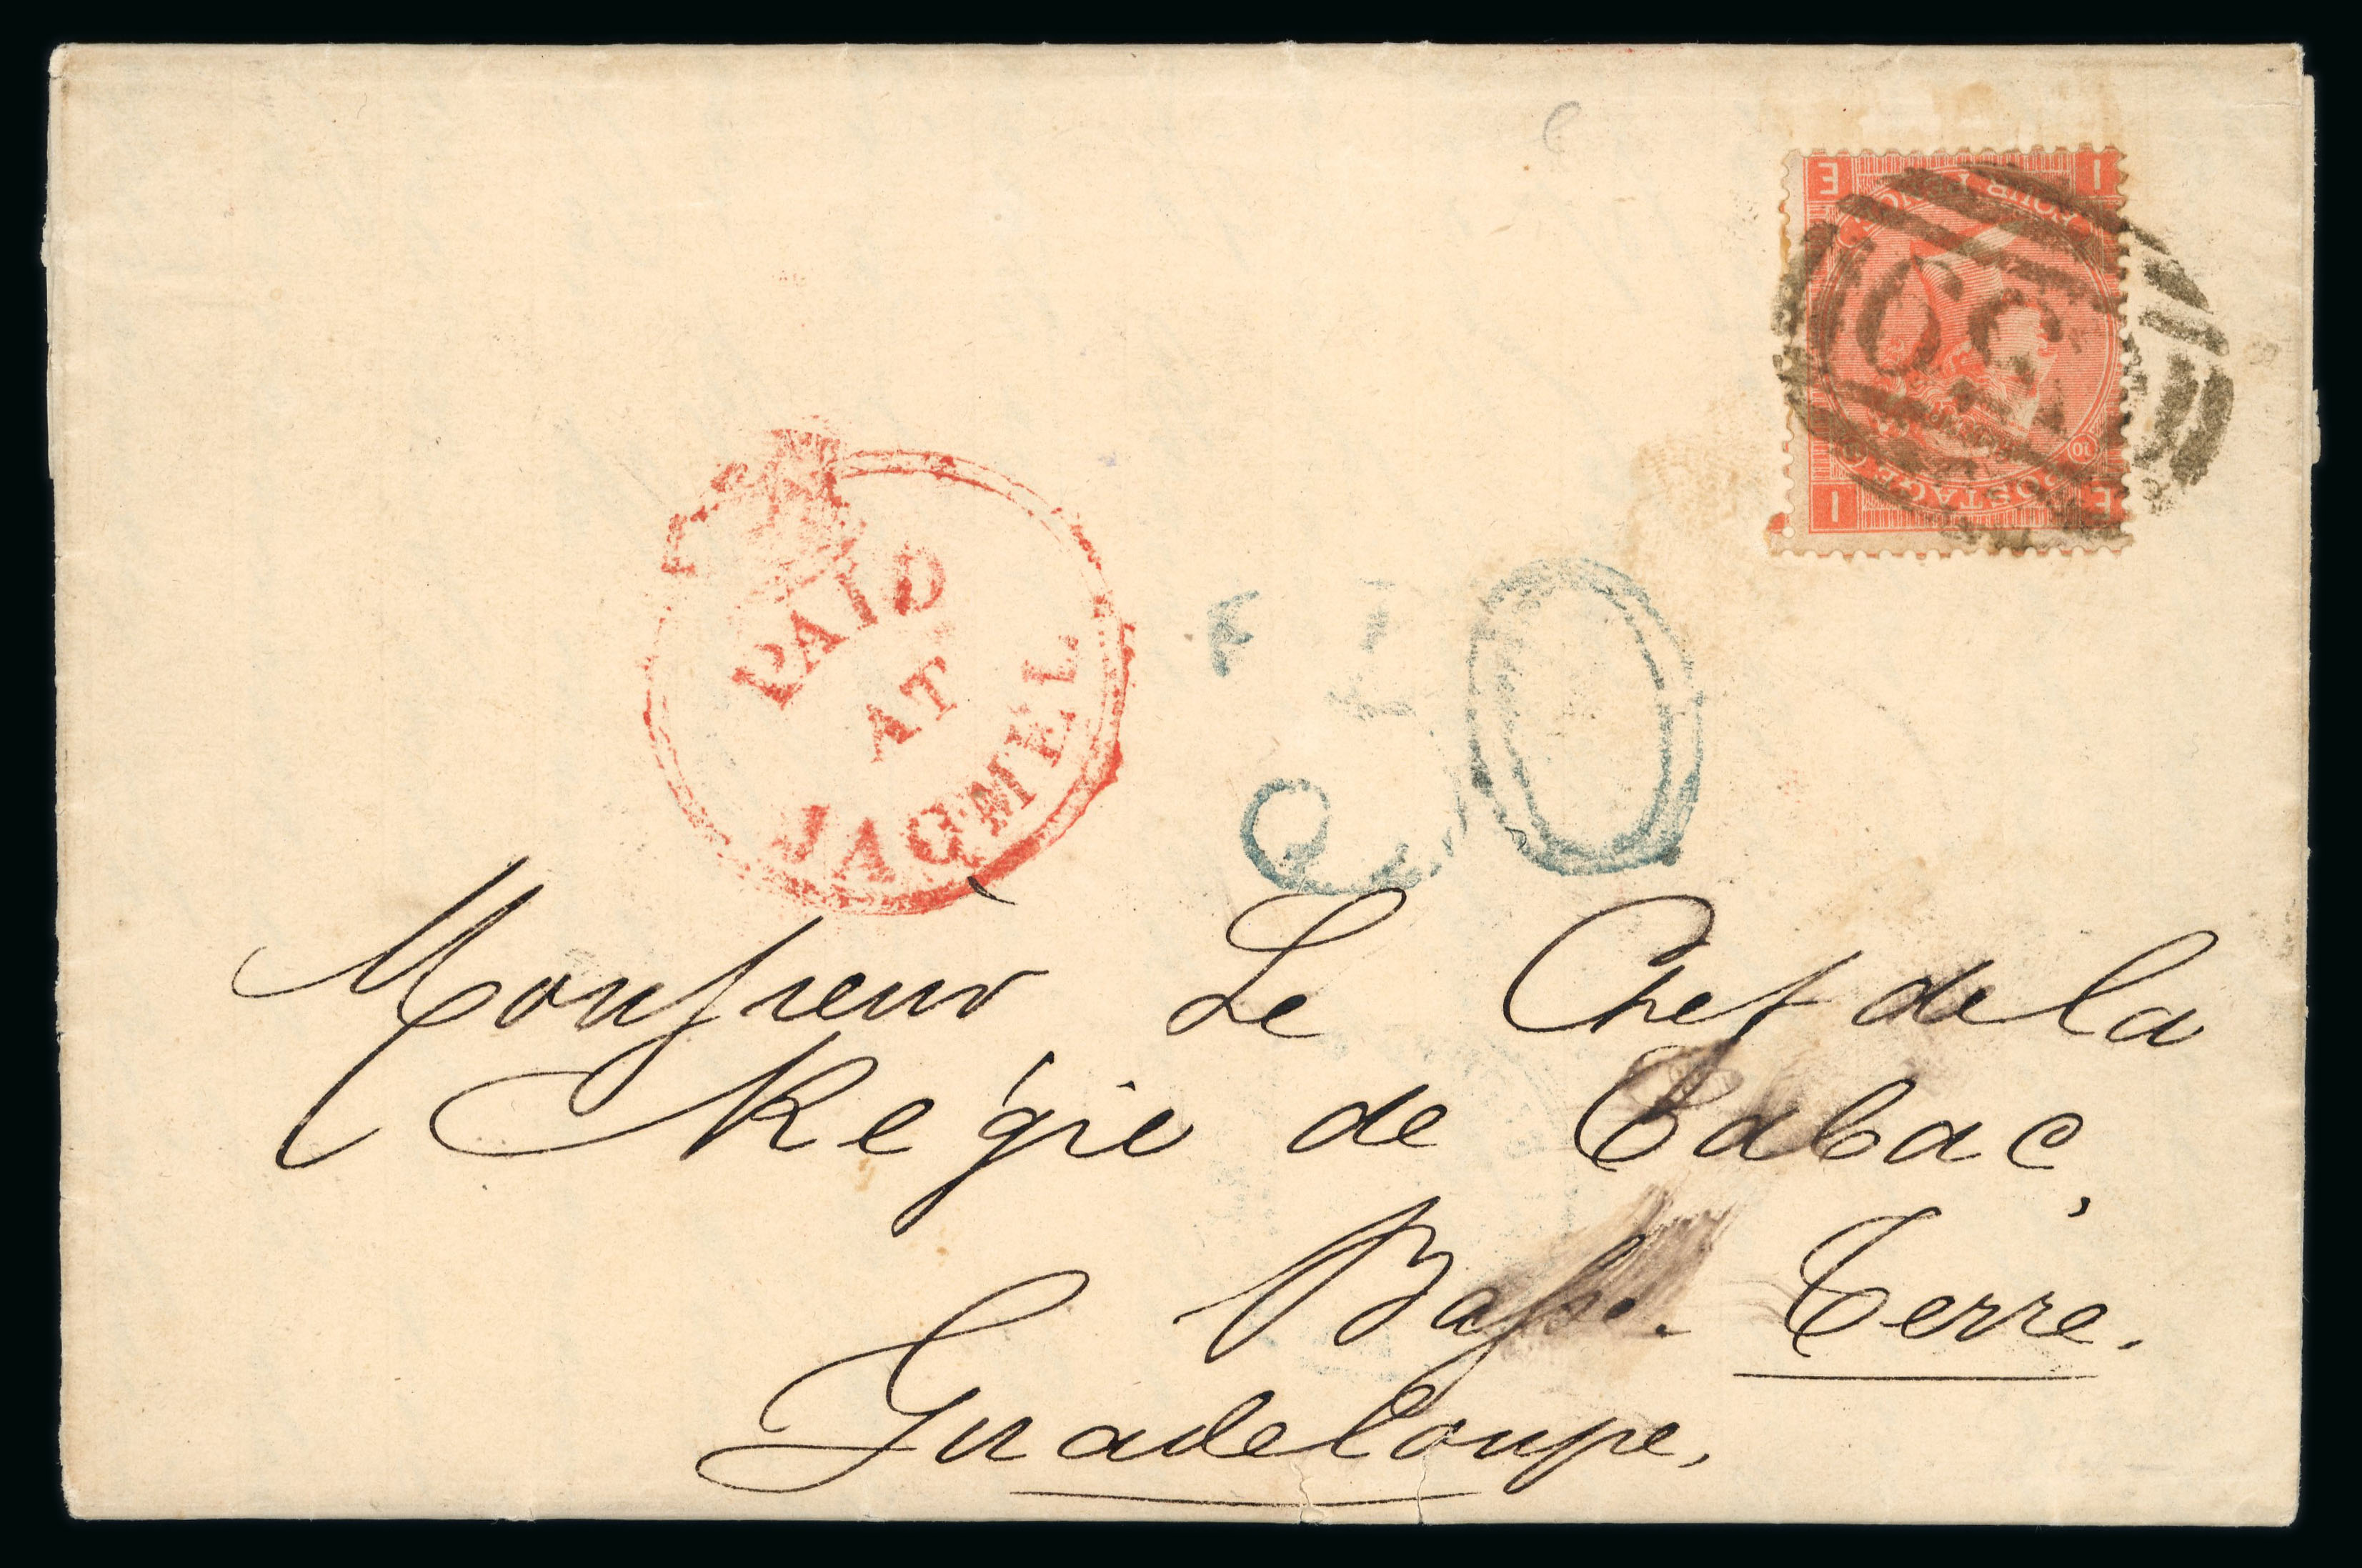 PAID
AT
JACMEL
30
C59
FOUR PENCE
POSTAGE
E I
I E
10
Monsieur Le Chef de la
Régie de Tabac,
Basse. Terre.
Guadeloupe.